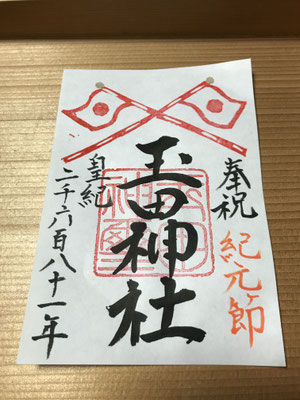 奉祝
紀元節
玉田神社
皇紀
二千六百八十一年